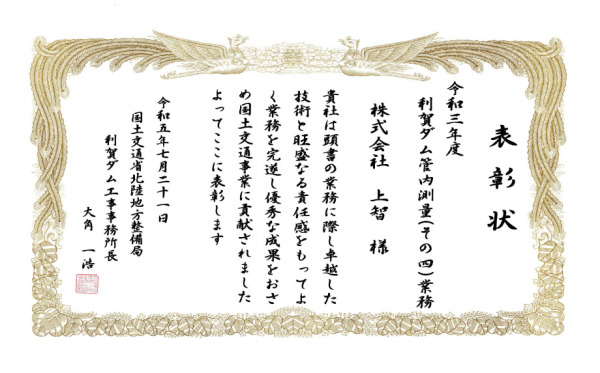 表彰状
令和三年度
利賀ダム管内測量(その四)業務
株式会社 上智 様
貴社は頭書の業務に際し卓越した
技術と旺盛なる責任感をもってよ
く業務を完遂し優秀な成果をおさ
め国土交通事業に貢献されました
よってここに表彰します
令和五年七月二十一日
国土交通省北陸地方整備局
利賀ダム工事事務所長
大角 一浩